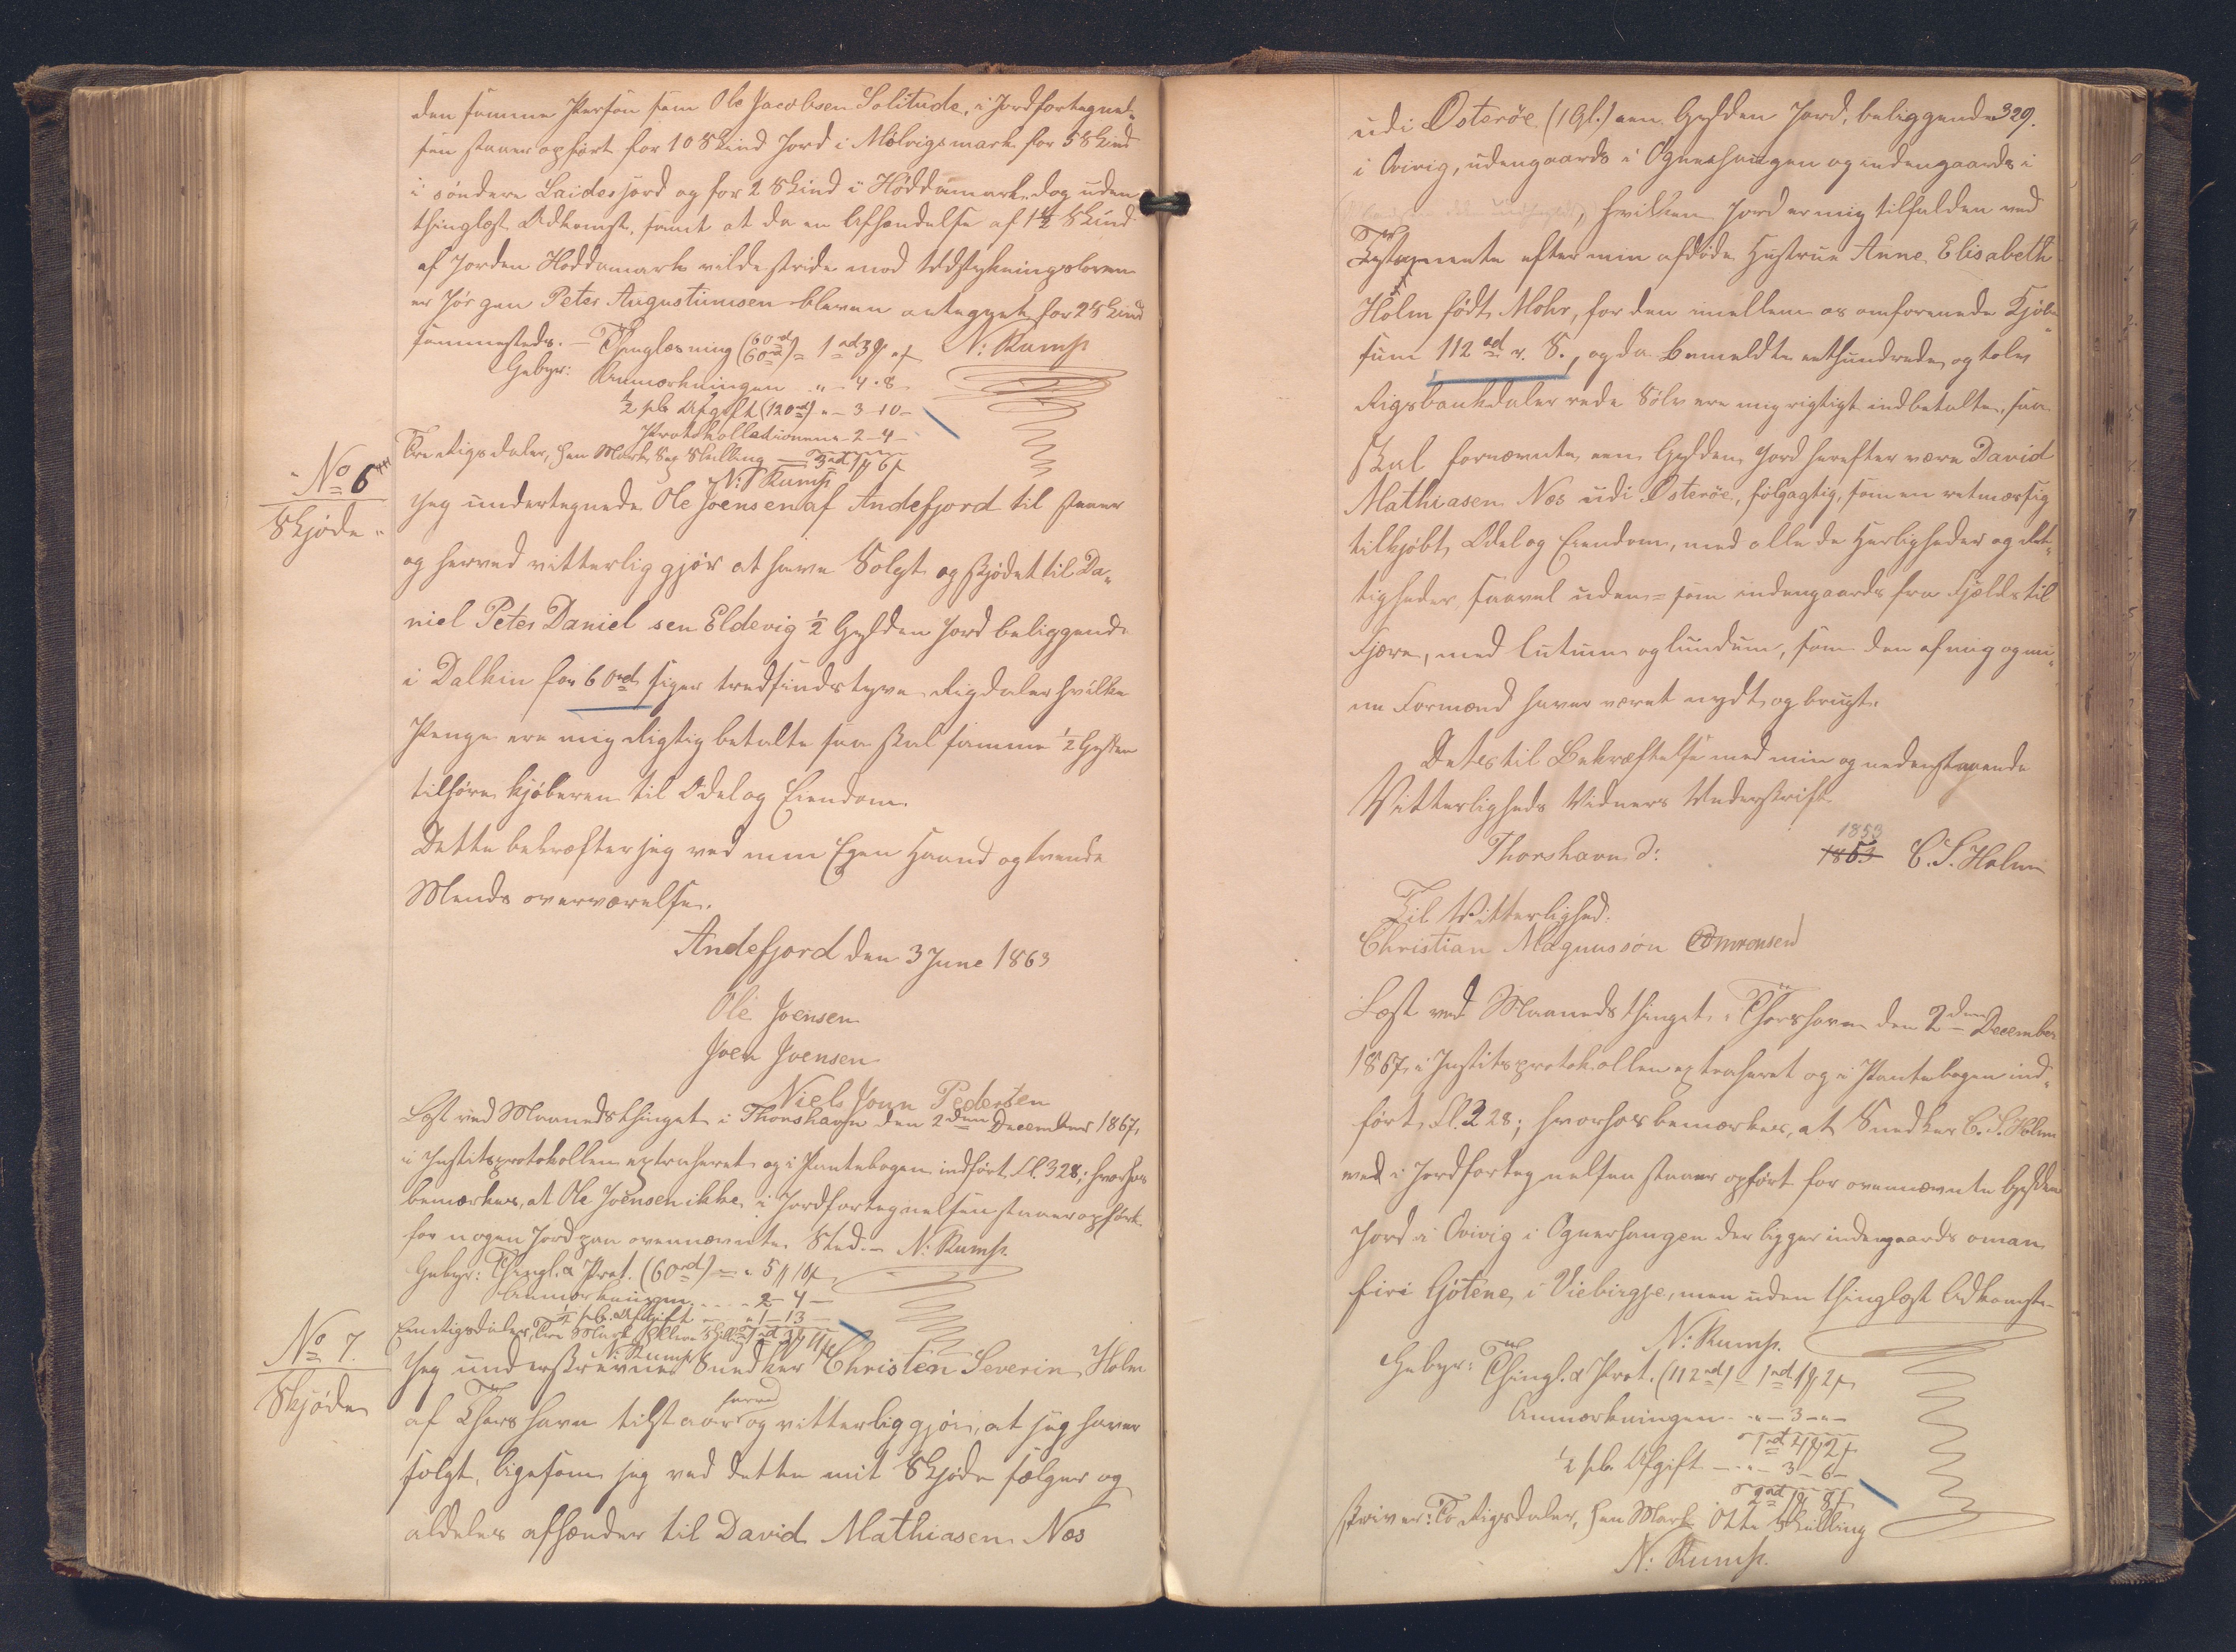 den samme Person som Ole Jacobsen Solitude, i Jordfortegnel-
sen staaer opført for 10 Skind Jord i Mølvigsmark for 5 Skind
i søndere Laidesjord og for 2 Skind i Høddamark, dog uden
thinglæst Adkomst, samt at da en Afhændelse af 1½ Skind
af Jorden Høddamark vilde stride mod Udstykningsloven
er Jørgen Peter Augustinusen bleven antegnet for 2 Skind
sammesteds. — N: Rump.
Gebyr: Thinglæsning (60rd 60rd) = 1rd 3
Anmærkningen " - 4 - 8
½ pCt Afgift (120rd) " - 3 - 10 -
Protokollationen - 2 - 4 -
Tre Rigsdaler, een Mark, Sex Skilling = 3rd 1 6
N: Rump
No 6
Skjøde
Jeg undertegnede Ole Joensen af Andefjord til staaer
og herved vitterlig gjør at have Solgt og skjødet til Da„
niel Peter Daniel sen Eldevig ½ Gylden Jord beliggende
i Dalkin for 60rd siger tredsindstyve Rigdaler hvilke
Penge ere mig Rigtig betalte saa skal samme ½ Gylden
tilhøre kjøberen til Odel og Eiendom.
Dette bekræfter jeg ved min Egen Haand og tvende
Mends overværelse.
Andefjord den 3 June 1863
Ole Joensen
Joen Joensen
Niels Joun Pedersen
Læst ved Maanedsthinget i Thorshavn den 2den December 1867,
i Justitsprotokollen extraheret og i Pantebogen indført Fl. 328; hvorhos
bemærkes, at Ole Joensen ikke i Jordfortegnelsen staaer opført
for nogen Jord paa ovennævnte Sted. — N: Rump.
Gebyr: Thingl. & Prot. (60rd) = " 5 10
Anmærkningen - - - 2 - 4 -
½ pCt. Afgift " - 1 - 13 -
Een Rigsdaler, Skilling
N: Rump
No 7.
Skjøde
Jeg underskrevne Snedker Christen Severin Holm
af Thorshavn tilstaar herved og vitterlig gjør, at jeg haver
solgt, ligesom jeg ved dette mit Skjøde sælger og
aldeles afhænder til David Mathiasen Næs
329.
udi Østerøe (1 Gl.) een Gylden Jord, beliggende
i Ørvig, udengaards i Ognerhaugen og indengaards i
), hvilken Jord er mig tilfalden ved
Testamente efter min afdøde Hustrue Anne Elisabeth
Holm født Mohr, for den imellem os omforenede Kjøbe„
sum 112rd r. S., og da bemeldte eethundrede og tolv
Rigsbankdaler rede Sølv ere mig rigtigt indbetalte, saa
skal fornævnte een Gylden Jord herefter være David
Mathiasen Næs udi Østerøe, følgagtig, som en retmæssig
tilkjøbt Odel og Eiendom, med alle de Herligheder og Ret„
tigheder, saavel uden= som indengaards fra Fjelds til
Fjære, med lutum og lundum, som den af mig og mi„
ne Formænd haver været nydt og brugt.
Dets til Bekræftelse med min og nedenstaaende
Vitterligheds Vidners Underskrift.
Thorshavn d: 1853 1853 C. S. Holm
Til Vitterlighed:
Christian Magnussøn
Læst ved Maanedsthinget i Thorshavn den 2den December
1867, i Justitsprotokollen extraheret og i Pantebogen ind„
ført Fl. 328; hvorhos bemærkes, at Snedker C. S. Holm
med i Jordfortegnelsen staaer opført for ovennævnte Gylden
Jord i Ørvig i Ognerhaugen der ligger indengaards oman
firi Gjøtene, i Viebirgje, men uden thinglæst Adkomst.
N: Rump.
Gebyr: Thingl. & Prot. (112rd) = 1rd 1 2
Anmærkningen - " - 3 - " -
1rd 4 2
½ pCt. Afgift - " - 3 - 6 -
2rd 1 8
skriver: To Rigsdaler, een Mark Otte Skilling
N: Rump.